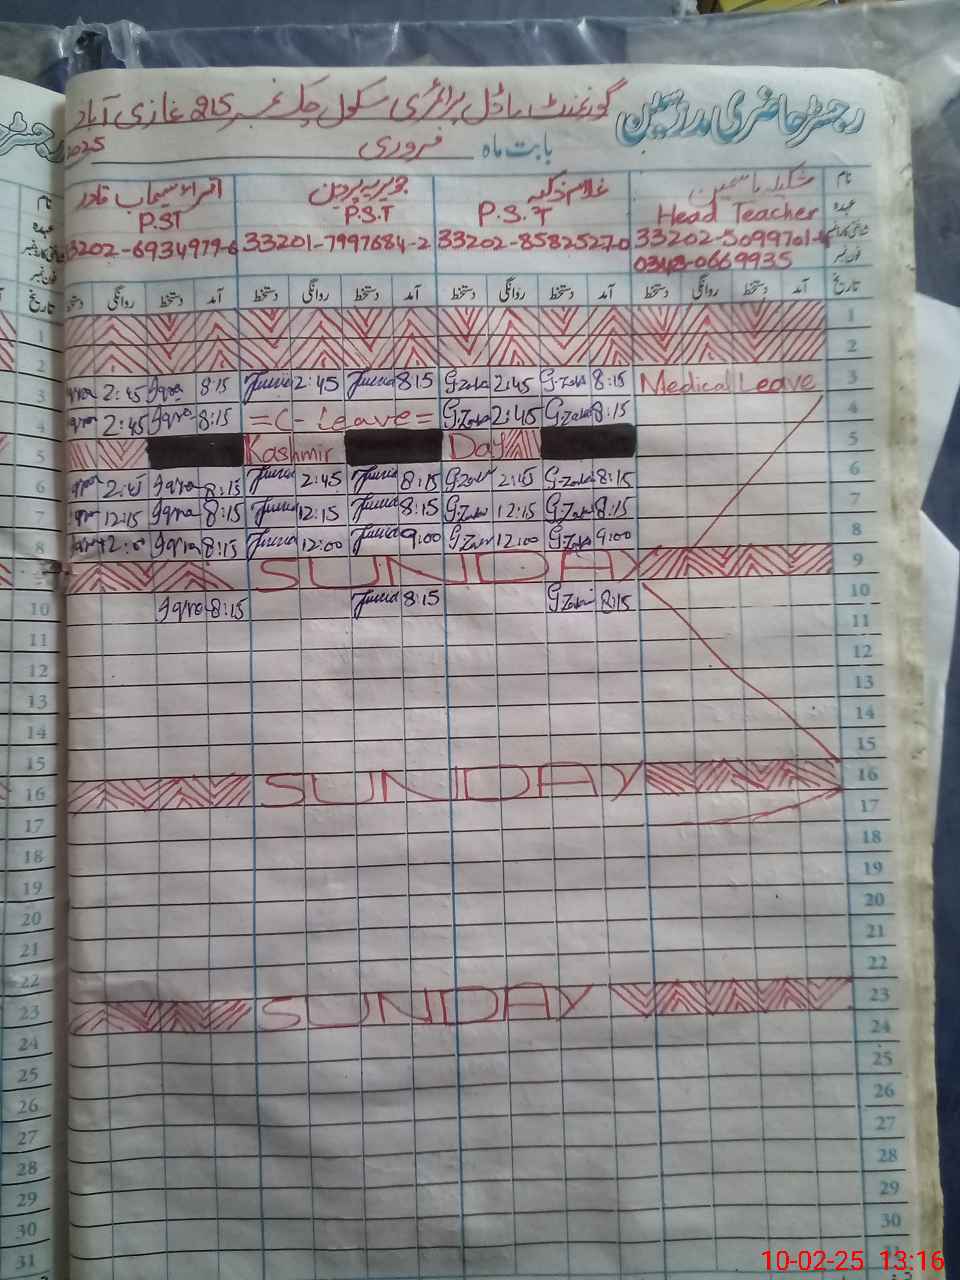 رجسٹر حاضری مدرسین
گورنمنٹ ماڈل پرائمری سکول چک نمبر 215 غازی آباد
بابت ماہ فروری 2025
نام شکیلہ یاسمین غلام ذکیہ جویریہ پروین
عہدہ Head Teacher P.S.T P.S.T P.ST
33202-5099701-4 33202-8582527-0 33201-7997684-2 33202-6934979-6
فون نمبر 0348-0669935
تاریخ آمد دستخط روانگی دستخط آمد دستخط روانگی دستخط آمد دستخط روانگی دستخط آمد دستخط روانگی دستخط
1
2
3 Iqra 2:45 Iqra 8:15 Juvria 2:45 Juvria 8:15 G.Zakia 2:45 G.Zakia 8:15 Medical Leave 3
4 Iqra 2:45 Iqra 8:15 =C-Leave= G.Zakia 2:45 G.Zakia 8:15 4
5 Kashmir Day 5
6 Iqra 2:45 Iqra 8:15 Juvria 2:45 Juvria 8:15 G.Zakia 2:45 G.Zakia 8:15 6
7 Iqra 12:15 Iqra 8:15 Juvria 12:15 Juvria 8:15 G.Zakia 12:15 G.Zakia 8:15 7
8 Iqra Iqra 8:15 Juvria 12:00 Juvria 9:00 G.Zakia 12:00 G.Zakia 9:00 8
SUNDAY 9
10 Iqra 8:15 Juvria 8:15 G.Zakia 8:15 10
11 11
12 12
13 13
14 14
15 15
16 SUNDAY 16
17 17
18 18
19 19
20 20
21 21
22 22
23 SUNDAY 23
24 24
25 25
26 26
27 27
28 28
29 29
30 30
31
10-02-25 13:16